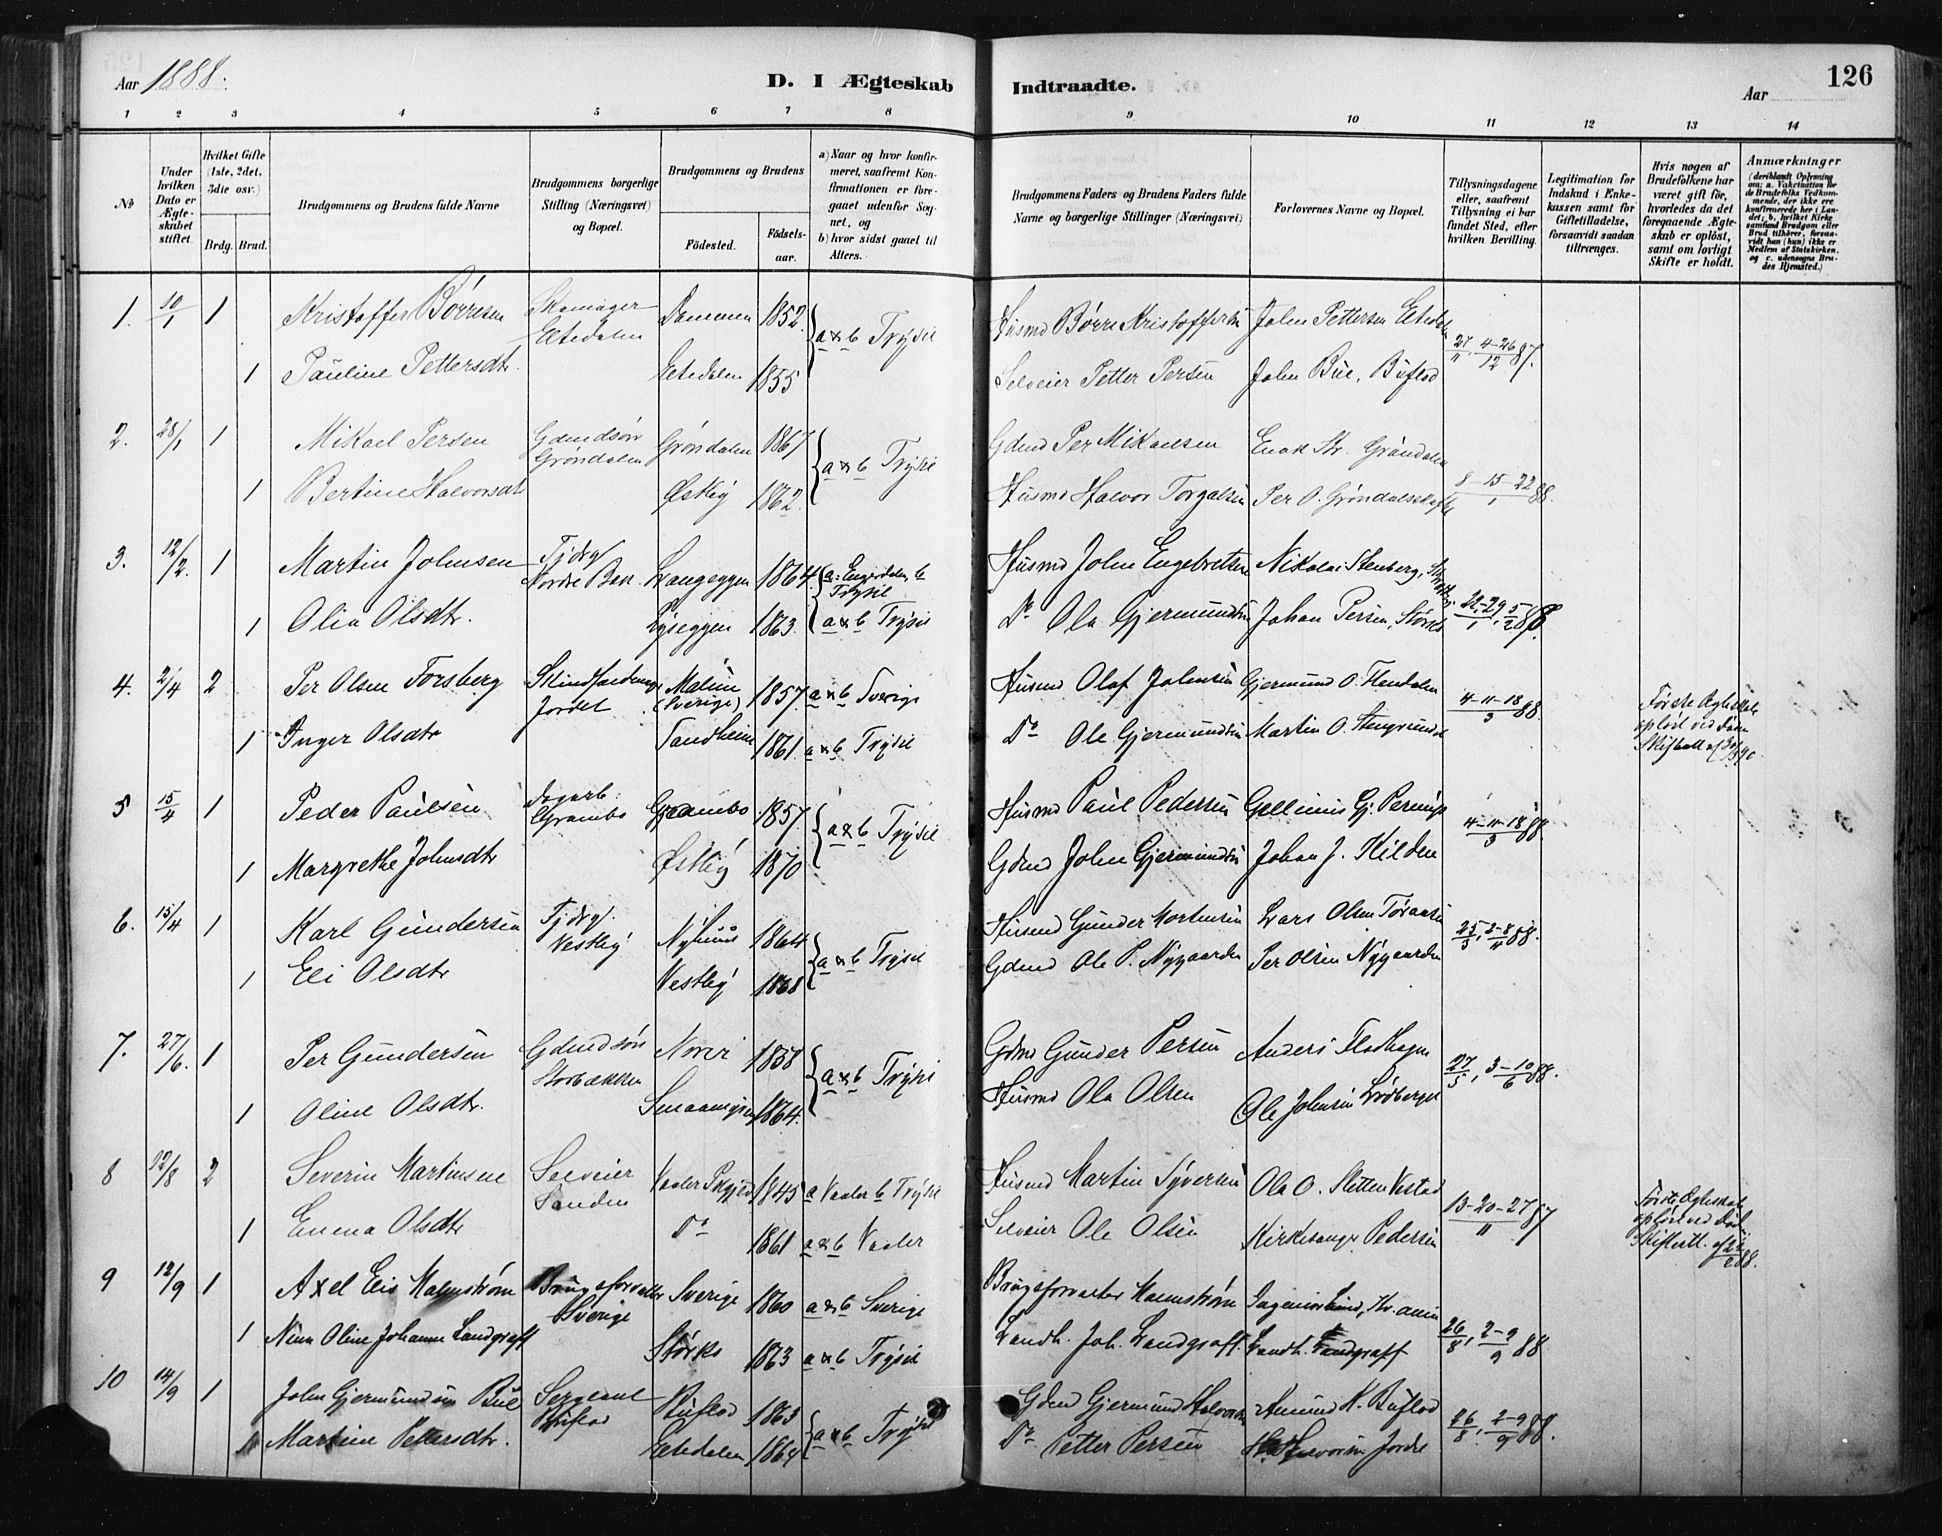 Aar 1888.
D. I Ægteskab
Indtraadte.
126
Aar
1 2 3 4 5 6 7 8 9 10 11 12 13 14
No
Under hvilken Dato er Ægteskabet stiftet.
Hvilket Gifte (1ste, 2det, 3die osv.)
Brdg. Brud.
Brudgommens og Brudens fulde Navne
Brudgommens borgerlige Stilling (Næringsvei) og Bopæl.
Brudgommens og Brudens
Födested.
Födsels-aar.
a) Naar og hvor konfirmeret, saafremt Konfirmationen er foregaaet udenfor Sognet, og
b) hvor sidst gaaet til Alters.
Brudgommens Faders og Brudens Faders fulde Navne og borgerlige Stillinger (Næringsvei)
Forlovernes Navne og Bopæl.
Tillysningsdagene eller, saafremt Tillysning ei har fundet Sted, efter hvilken Bevilling.
Legitimation for Indskud i Enkekassen samt for Giftetilladelse, forsaavidt saadan tiltrænges.
Hvis nogen af Brudefolkene har været gift før, hvorledes da det foregaaende Ægteskab er oplöst, samt om lovligt Skifte er holdt.
Anmærkninger
(deriblandt Oplysning om: a. Vakcination for de Brudefolks Vedkommende, der ikke ere konfirmerede her i Landet; b. hvilket Kirkesamfund Brudgom eller Brud tilhörer, forsaavidt han (hun) ikke er Medlem af Statskirken, og c. udensogns Brudes Hjemsted.)
1. 10/1 1 Kristoffer Börresen Skomager Eltedalen Dammen 1852 a & b Trysil Husmd Börre Kristoffersen John Pettersen Eltedalen 27/11, 4-26/12 87.
1 Pauline Pettersdtr. Eltedalen 1855 Selveier Petter Persen John Bue, Buflod
2. 28/1 1 Mikael Persen Gdmdsön Gröndalen Gröndalen 1867 a & b Trysil Gdmd Per Mikaelsen Enok Str. Gröndalen 8-15-22/1 88.
1 Bertine Halvorsdtr Östby 1862. Husmd Halvor Torgalsen Per O. Gröndalsskaft
3. 12/2. 1 Martin Johnsen Tjdrgt Nordre Ben. Langeggen 1864. a: Engerdalen, b Trysil Husmd John Engebretsen Nikolai Stenberg, 22-29/1, 5/2 88.
1 Olia Olsdtr. Lyseggen 1863. a & b Trysil Do Ola Gjermundsen Johan Persen, Störks
4. 2/4 2 Per Olsen Forsberg Jordet Malung (Sverige) 1857 a & b Sverige Husmd Olof Johnsen Gjermund O. Flendalen 4-11-18/3 88. Første Ægteskab opløst ved Døden Skifteatt af
1 Inger Olsdtr Sandheim 1861. a & b Trysil Do Ole Gjermundsen Martin O. Stengrundet
5 15/4 1 Peder Paulsen Dagarb. Grambo Grambo 1857. a & b Trysil Husmd Paul Pedersen 4-11-18/3 88.
1 Margrethe Johnsdtr Östby 1870 Gdmd John Gjermundsen Johan J. Kilden
6. 15/4 1 Karl Gundersen Tjdrgt. Vestby Nyhuus 1864 a & b Trysil Husmd Gunder Mortensen Lars Olsen 25/3, 2-8/4 88.
1 Eli Olsdtr Vestby 1868 Gdmd Ole P. Nygaarden Per Olsen Nygaarden
7. 27/6. 1 Per Gundersen Gdmdsön Storbækken Norer 1858 a & b Trysil Gdmd Gunder Persen Anders Flodhagen 27/5, 3-10/6 88.
1 Oline Olsdtr. 1864. Husmd Ola Olsen Ole Johnsen Lödberget
8 12/8 2 Severin Martinsen Selveier Sanden Vaaler Prgjld 1845 a Vaaler b Trysil Husmd Martin Syversen Ola O. Sletten Vestad 13-20-27/11 87 Første Ægteskab opløst ved Død Skifteatt. af 22/2 88.
1 Emma Olsdtr Do 1861 a & b Vaaler Selveier Ole Olsen Kirkesanger Pedersen
9 12/9 1 Axel Eis Malmström Brugsforvalter Sverige Sverige 1860 a & b Sverige Brugsforvalter Malmström Ingeniør Lund, Kr.ania 26/8, 2-9/9 88
1 Nina Oline Johanne Landgraff Störks 1863 a & b Trysil Landh. Joh. Landgraff. Landh. Landgraff
10 14/9 1 John Gjermundsen Bue Sergeant Buflod Buflod 1863 a & b Trysil Gdmd Gjermund Halvorsen Amund K. Buflod 26/8, 2-9/9 88.
1 Martine Pettersdtr. Eltedalen 1864 Do Petter Persen H. Halvorsen Jordet